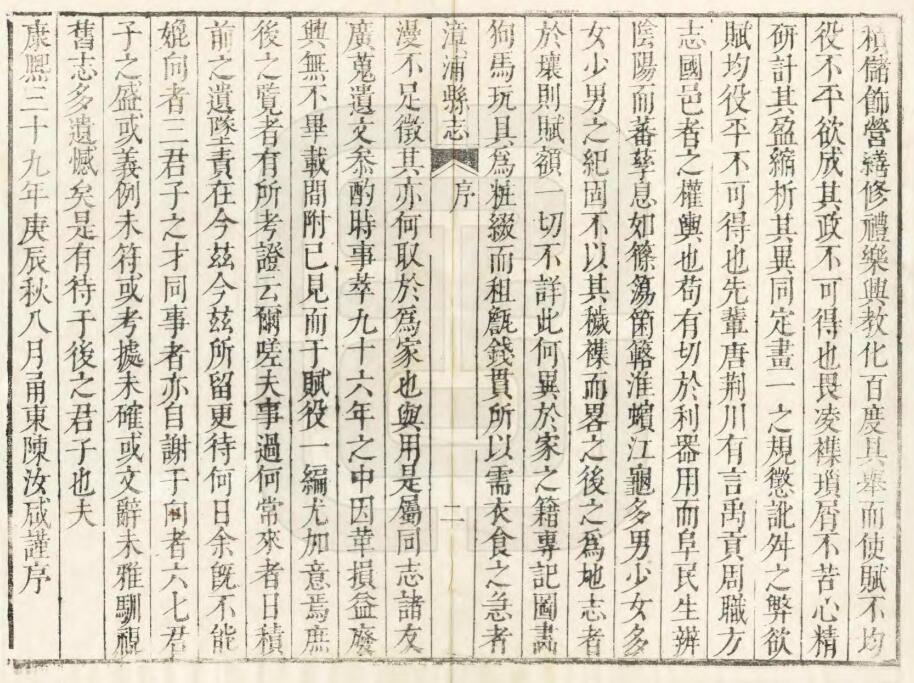 積儲飾營繕修禮樂興教化百度具舉而使賦不均
役不平欲成其政不可得也畏凌襍瑣屑不苦心精
研計其盈縮析其異同定畫一之規懲訛舛之弊欲
賦均役平不可得也先輩唐荆川有言禹貢周職方
志國邑者之權輿也苟有切於利器用而阜民生辨
陰陽而蕃孳息如篠簜箘簵淮蠙江龜多男少女多
女少男之紀固不以其穢襍而畧之後之爲地志者
於壤則賦額一切不詳此何異於家之籍專記圖畫
狗馬玩具爲粧綴而租甔錢貫所以需衣食之急者
漳浦縣志
序
二
漫不足徵其亦何取於爲家也與用是屬同志諸友
廣蒐遺文叅酌時事萃九十六年之中因革損益廢
興無不畢載間附已見而于賦役一編尤加意焉庶
後之覽者有所考證云爾嗟夫事過何常來者日積
前之遺墜責在今兹今兹所留更待何日余旣不能
媲向者三君子之才同事者亦自謝于向者六七君
子之盛或義例未符或考據未確或文辭未雅馴視
舊志多遺憾矣是有待于後之君子也夫
康熙三十九年庚辰秋八月甬東陳汝咸謹序